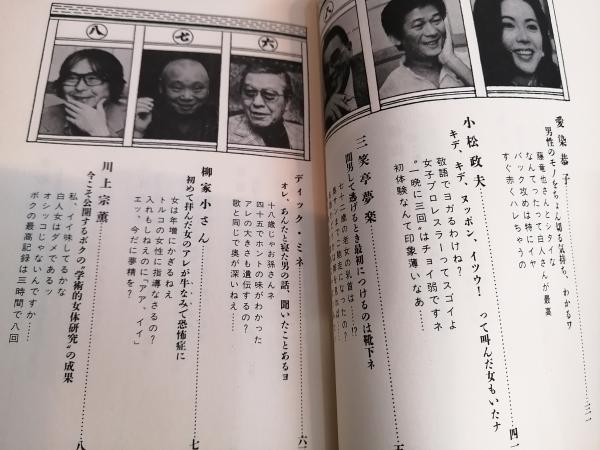 愛染恭子
男性のモノをちょん切る気持ち、わかるワ
藤竜也さんってステキだわ
なんてったって白人さんが最高
バック攻めは特にイヤ
すぐ赤くハレちゃうの
三一
小松政夫
キデ、キデ、ヌッポン、イツウ! って叫んだ女もいたナ
敬語でヨガるわけね?
女子プロレスラーってスゴイよ
“一晩に三回”はチョイ弱ですネ
初体験なんて印象薄いなあ…
四一
三笑亭夢楽
間男して逃げるとき最初につけるのは靴下ネ
七十二歳の老女の乳首は……!?
五
六
ディック・ミネ
オレ、あんたと寝た男の話、聞いたことあるヨ
十八歳じゃお孫さんネ
四十五でホントの味がわかった
アレの大きさも遺伝するの?
歌と同じで奥が深いねえ…
六一
七
柳家小さん
初めて拝んだ女のアレが牛なみで恐怖症に
女は年増にかぎるねえ
トルコの女性に指導なさるの?
入れもしねえのに「アア、イイ」
エッ、今だに夢精を?
七
八
川上宗薫
今こそ公開するボクの“学術的女体研究”の成果
私、イイ味してるかな
白人女はダメであるッ
オシッコじゃないんですか…
ボクの最高記録は三時間で八回
八